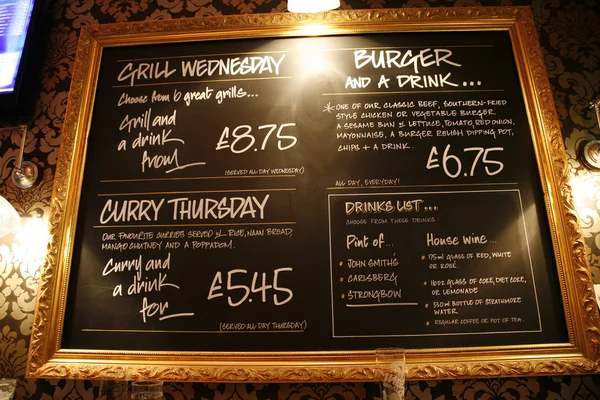 GRILL WEDNESDAY
Choose from 6 great grills...
Grill and
a drink
from
£8.75
(SERVED ALL DAY WEDNESDAY)
CURRY THURSDAY
OUR FAVOURITE CURRIES SERVED w. RICE, NAAN BREAD,
MANGO CHUTNEY AND A POPPADOM.
Curry and
a drink
for
£5.45
(SERVED ALL DAY THURSDAY)
BURGER
AND A DRINK...
*ONE OF OUR CLASSIC BEEF, SOUTHERN-FRIED
STYLE CHICKEN OR VEGETABLE BURGER
A SESAME BUN & LETTUCE, TOMATO, RED ONION,
MAYONNAISE, A BURGER RELISH DIPPING POT,
CHIPS + A DRINK.
£6.75
ALL DAY, EVERYDAY!
DRINKS LIST...
CHOOSE FROM THESE DRINKS
Pint of...
JOHN SMITH'S
CARLSBERG
STRONGBOW
House wine...
175ml GLASS OF RED, WHITE
OR ROSÉ.
16oz GLASS OF COKE, DIET COKE,
OR LEMONADE
330ml BOTTLE OF STRATHMORE
WATER
REGULAR COFFEE OR POT OF TEA.